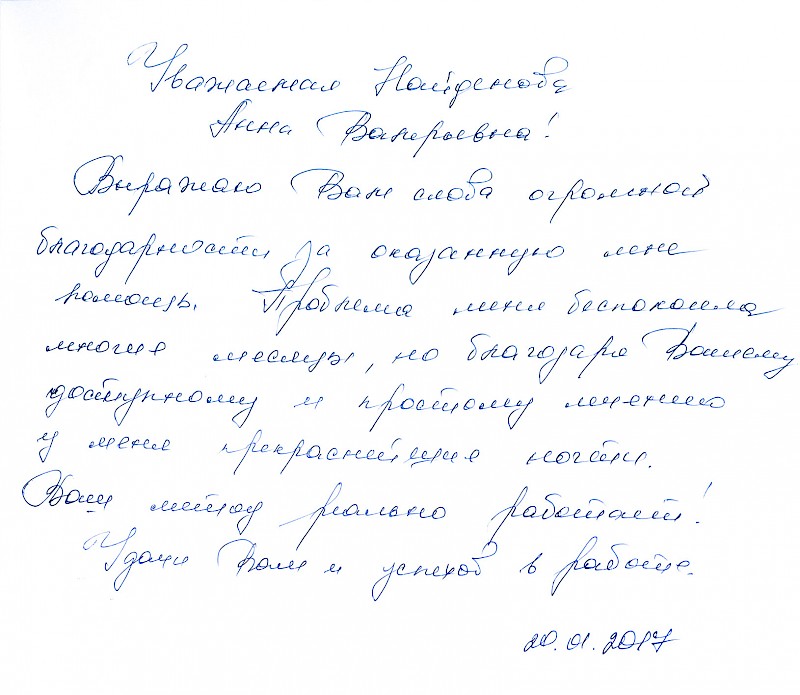 Уважаемая Найденова
Анна Валерьевна!
Выражаю Вам слова огромной
благодарности за оказанную мне
помощь. Проблема меня беспокоила
многие месяцы, но благодаря Вашему
доступному и простому мнению
у меня прекраснейшие ногти.
Ваш метод реально работает!
Удачи Вам и успехов в работе.
20.01.2017